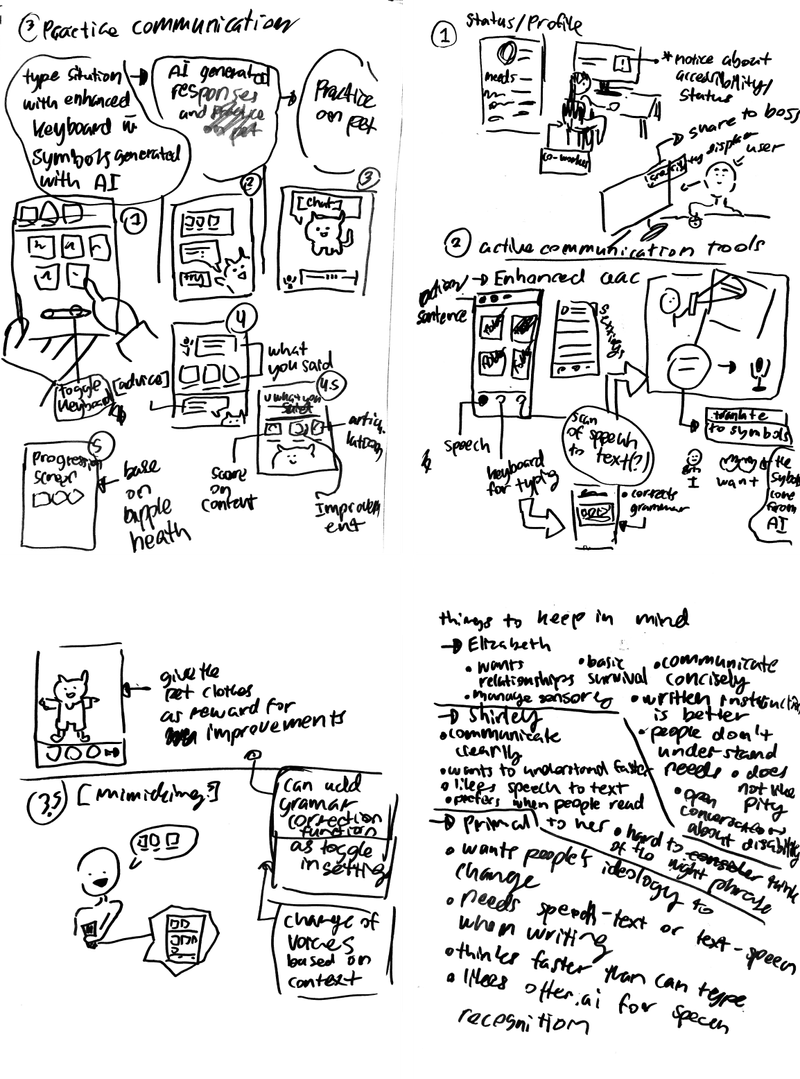 ③ Practice communication
type sitution
with enhanced
keyboard w
symbols generated
with AI
AI generated
responses
and practice
on pet
Practice
on pet
①
②
try
③
[chat]
toggle
keyboard
④
what
you said
[advice]
4.5
what you
said
articu-
lation
score
on
content
Improvem
ent
5
Progression
screen
base
on
apple
health
① Status/Profile
needs
*notice about
accessibility/
status
co-worker
share to boss
display
user
② active communication tools
→ Enhanced aac
action/
sentence
settings
speech
keyboard
for typing
scan
of speech
to
text(?)
translate
to symbols
I
want
the
symbols
come
from
AI
• corrects
grammar
give the
pet clothes
as reward for
improvements
3.5 [mimicking?]
can add
gramar
correction
function
as toggle
in setting
change of
voices
based on
context
things to keep in mind
→ Elizabeth
• wants
relationships
• manage sensory
• basic
survival
• communicate
concisely
• written instructions
is better
• people don't
understand
needs
• does
not like
pity
• open
conversation
about disability
→ Shirley
• communicate
clearly
• wants to understand faster
• likes speech to text
• prefers when people read
to her
• hard to think
of the right phrase
→ Primal
• wants people's ideology to
change
• needs speech-text or text-speech
when writing
• thinks faster than can type
• likes otter.ai for speech
recognition